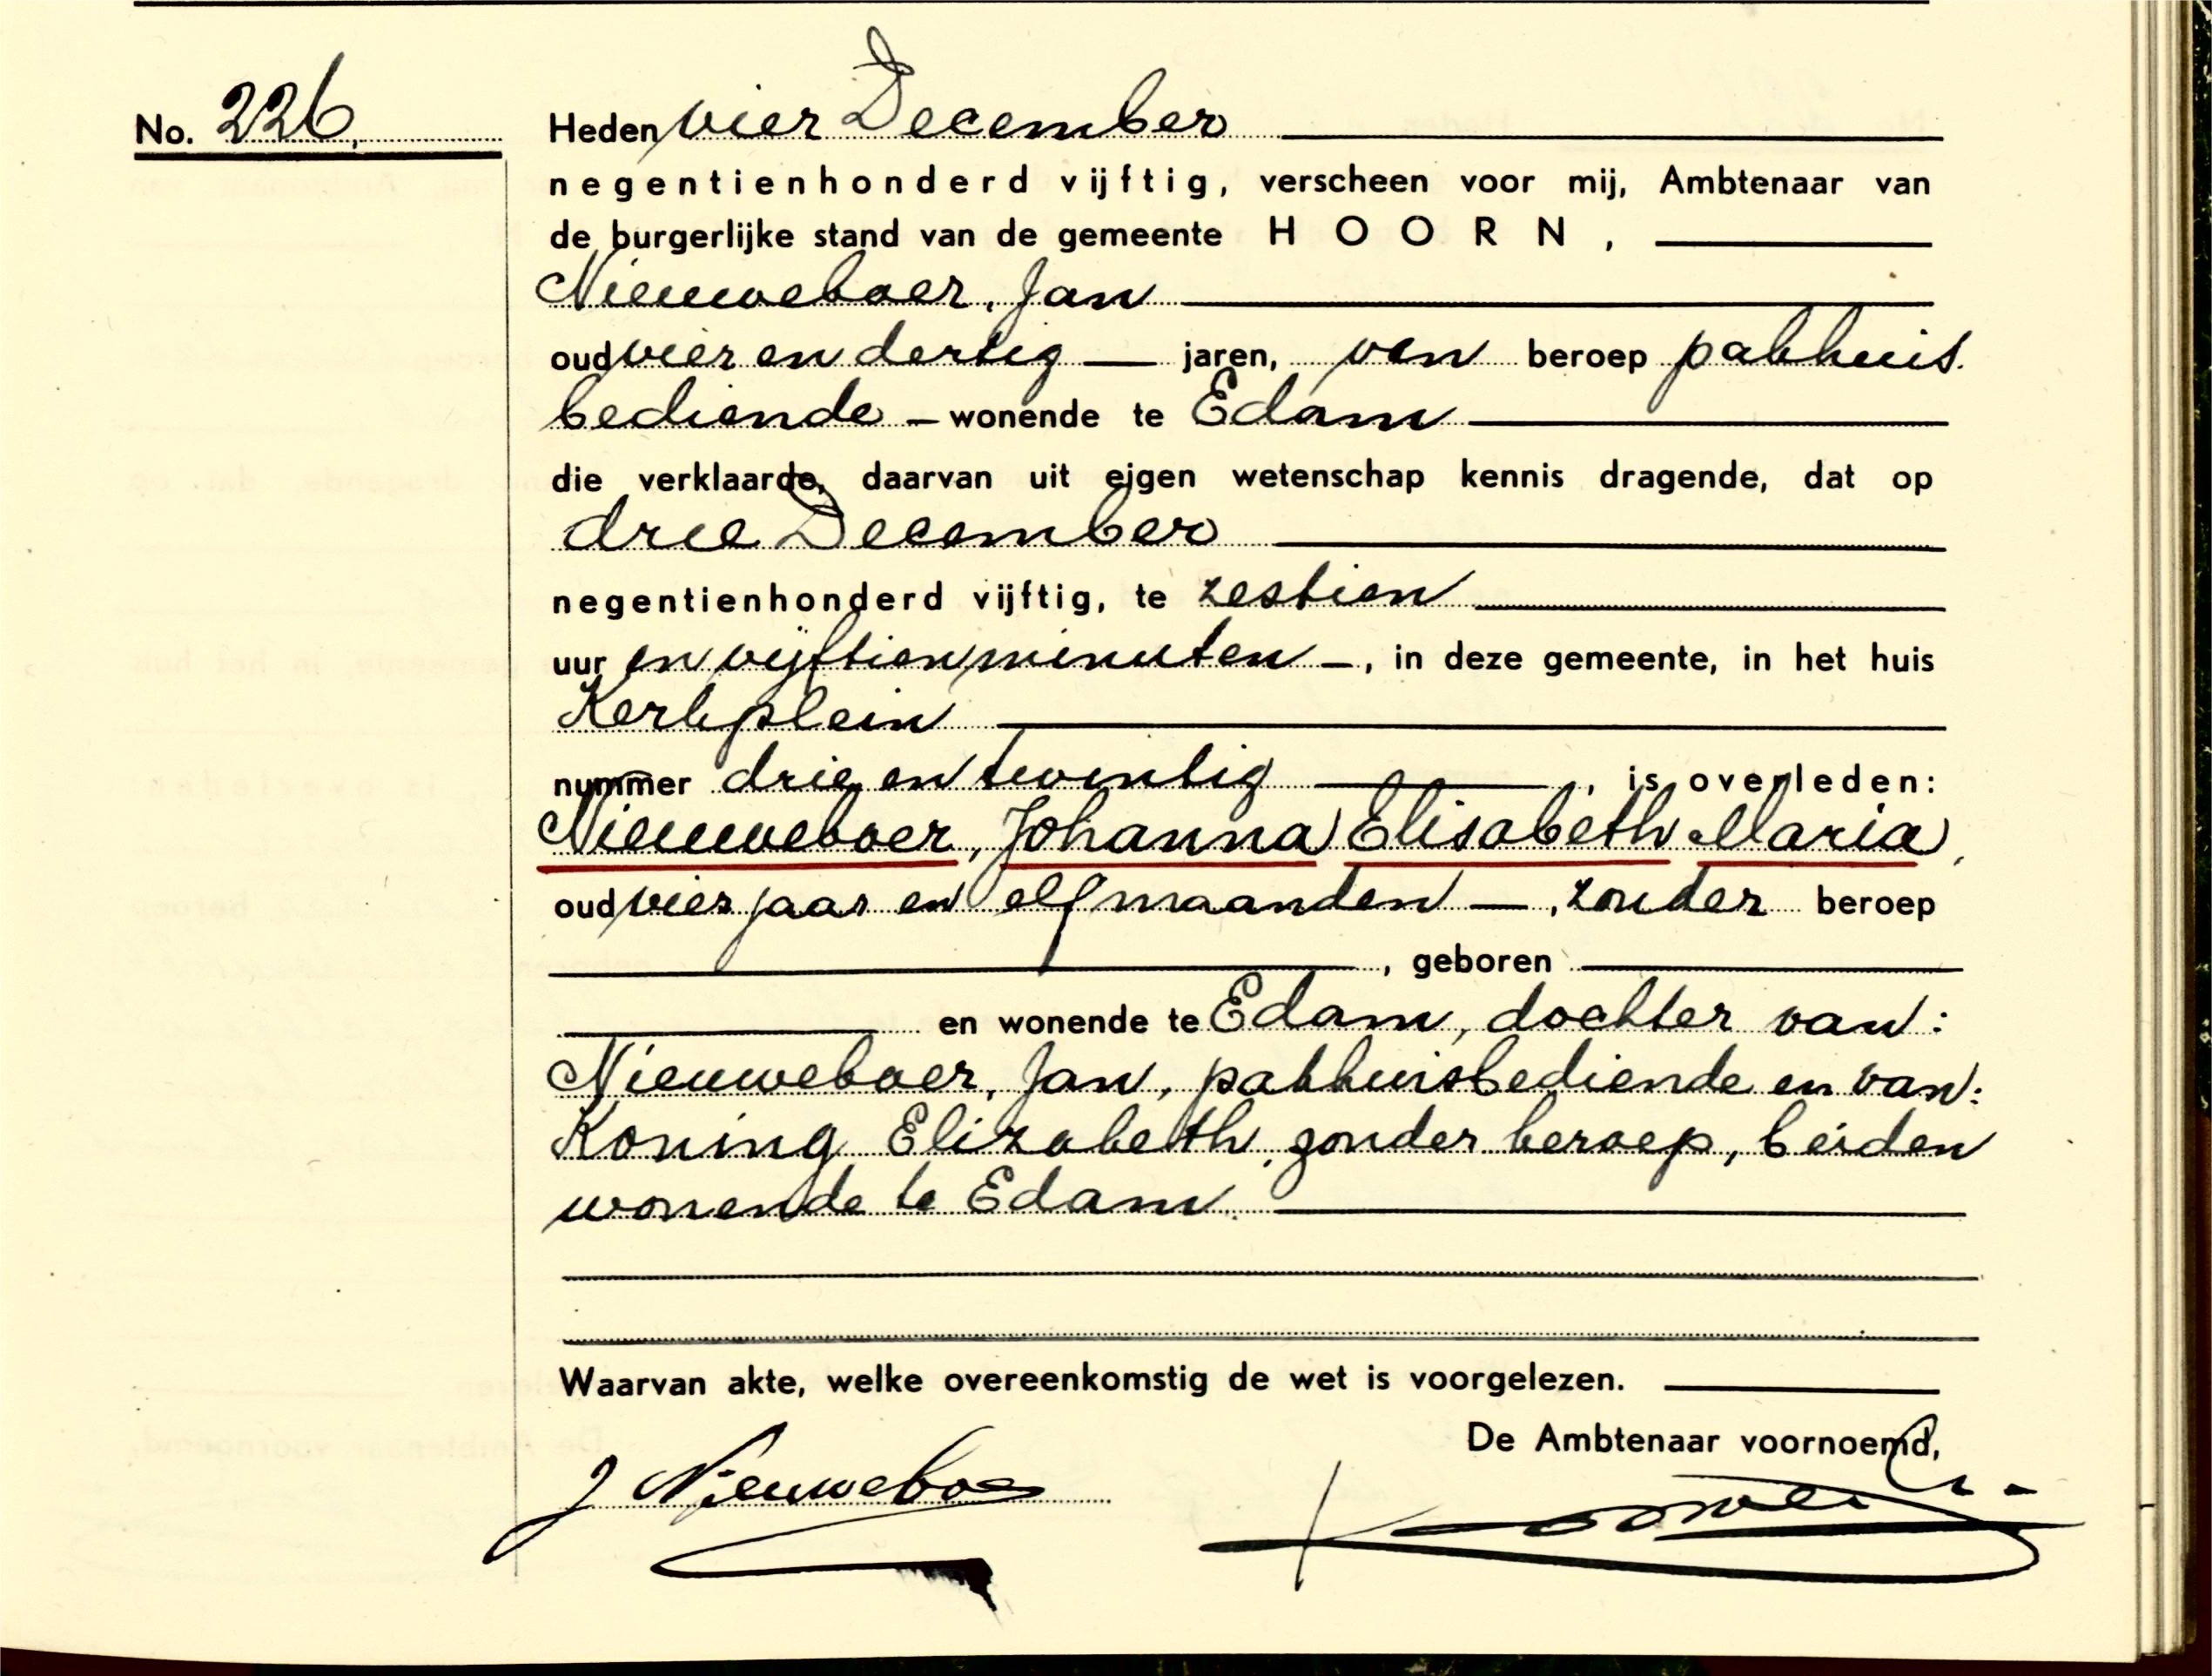 No. 226.
Heden vier December
negentienhonderd vijftig, verscheen voor mij, Ambtenaar van
de burgerlijke stand van de gemeente HOORN,
Nieuweboer, Jan
oud vier en dertig — jaren, van beroep pakhuis
bediende — wonende te Edam
die verklaarde, daarvan uit eigen wetenschap kennis dragende, dat op
drie December
negentienhonderd vijftig, te zestien
uur en vijftien minuten —, in deze gemeente, in het huis
Kerkplein
nummer drie en twintig, is overleden:
Nieuweboer, Johanna Elisabeth Maria,
oud vier jaar en elf maanden —, zonder beroep
, geboren
en wonende te Edam, dochter van:
Nieuweboer, Jan, pakhuisbediende en van:
Koning Elizabeth, zonder beroep, beiden
wonende te Edam.
Waarvan akte, welke overeenkomstig de wet is voorgelezen.
De Ambtenaar voornoemd,
J Nieuweboer